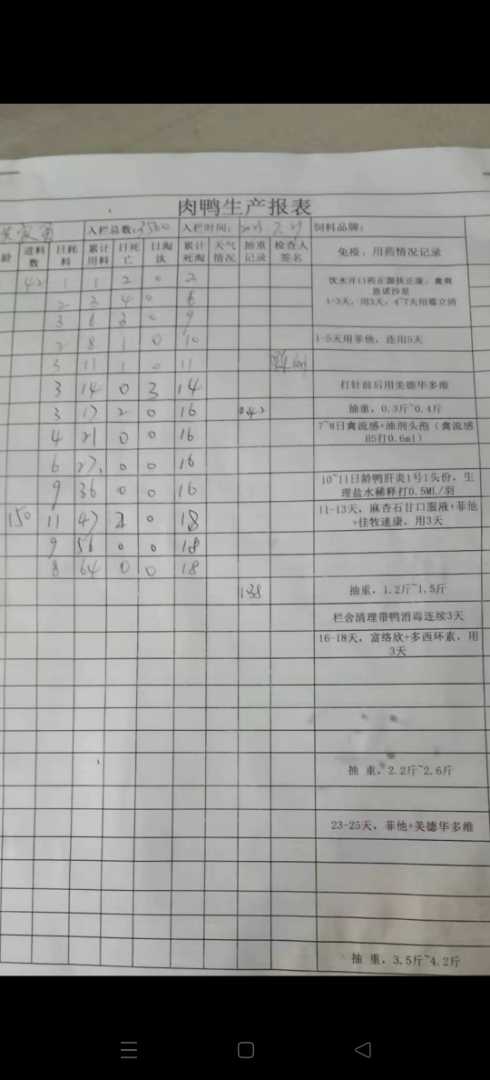 肉鸭生产报表
入栏总数:3500 入栏时间: 2023 7.29 饲料品牌:
龄 进料数 日耗料 累计用料 日死亡 日淘汰 累计死淘 天气情况 抽重记录 检查人签名 免疫、用药情况记录
42 1 1 2 0 2 饮水开口药
1-3天, 用3天, 4~7天用
2 3 4 0 6
3 6 3 0 9
2 8 1 0 10 1-5天用菲他, 连用5天
3 11 1 0 11
3 14 0 3 14 打针前后用美德华多维
3 17 2 0 16 0.42 抽重, 0.3斤~0.4斤
4 21 0 0 16 7~8日禽流感+油剂头孢(禽流感H5打0.6ml)
6 27 0 0 16
9 36 0 0 16 10~11日龄鸭肝炎1号1头份, 生理盐水稀释打0.5ML/羽
150 11 47 2 0 18 11-13天, 麻杏石甘口服液+菲他+佳牧速康, 用3天
9 56 0 0 18
8 64 0 0 18
1.38 抽重, 1.2斤~1.5斤
栏舍清理带鸭消毒连续3天
16-18天, 富络欣+多西环素, 用3天
抽 重, 2.2斤~2.6斤
23-25天, 菲他+美德华多维
抽 重, 3.5斤~4.2斤